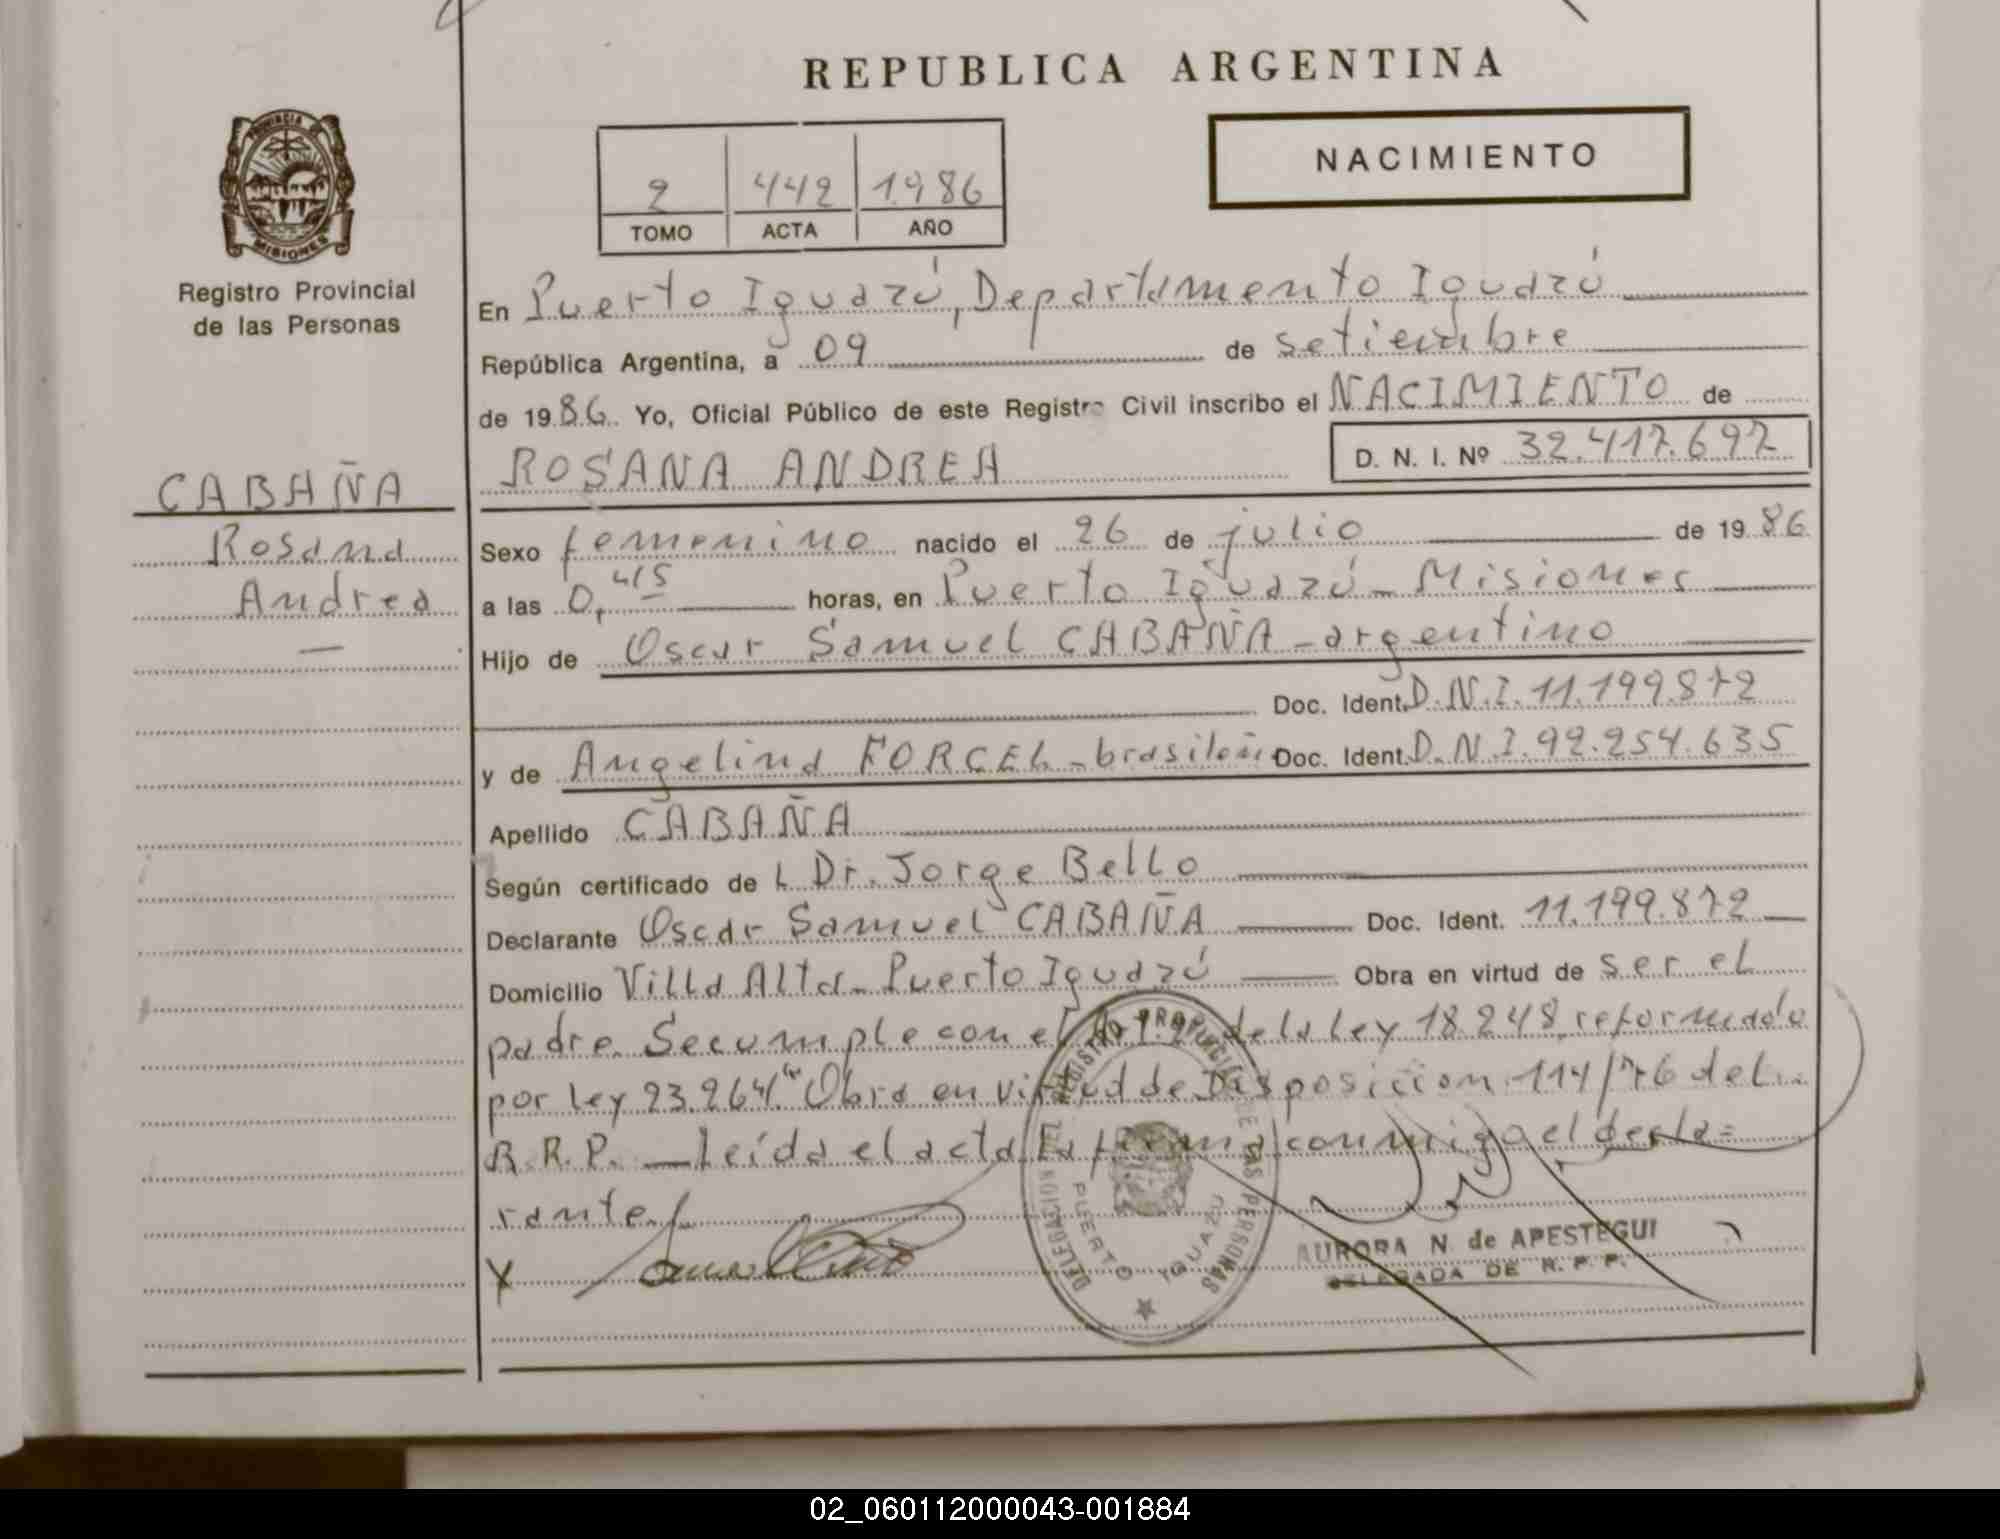 REPUBLICA ARGENTINA
PROVINCIA DE
MISIONES
Registro Provincial
de las Personas
2 442 1986
TOMO ACTA AÑO
NACIMIENTO
En Puerto Iguazú, Departamento Iguazú
República Argentina, a 09 de setiembre
de 1986. Yo, Oficial Público de este Registro Civil inscribo el NACIMIENTO de
ROSANA ANDREA D. N. I. Nº 32.417.697
CABAÑA
Rosana
Andrea
Sexo femenino nacido el 26 de julio de 1986
a las 0,45 horas, en Puerto Iguazú - Misiones
Hijo de Oscar Samuel CABAÑA - argentino
Doc. Ident. D.N.I. 11.199.872
y de Angelina FORCEL - brasileñ Doc. Ident. D.N.I. 92.254.635
Apellido CABAÑA
Según certificado de L Dr. Jorge Bello
Declarante Oscar Samuel CABAÑA Doc. Ident. 11.199.872
Domicilio Villa Alta - Puerto Iguazú Obra en virtud de ser el
padre. Se cumple con el de la Ley 18248 reformado
por ley 23.264." Obra en virtud de Disposicion 114/76 del
R.R.P. — Leída el acta la firma conmigo el decla=
rante
X
DELEGACION DEL REGISTRO PROVINCIAL DE LAS PERSONAS
PUERTO IGUAZU
AURORA N. de APESTEGUI
DELEGADA DE R. P. P.
02_060112000043-001884